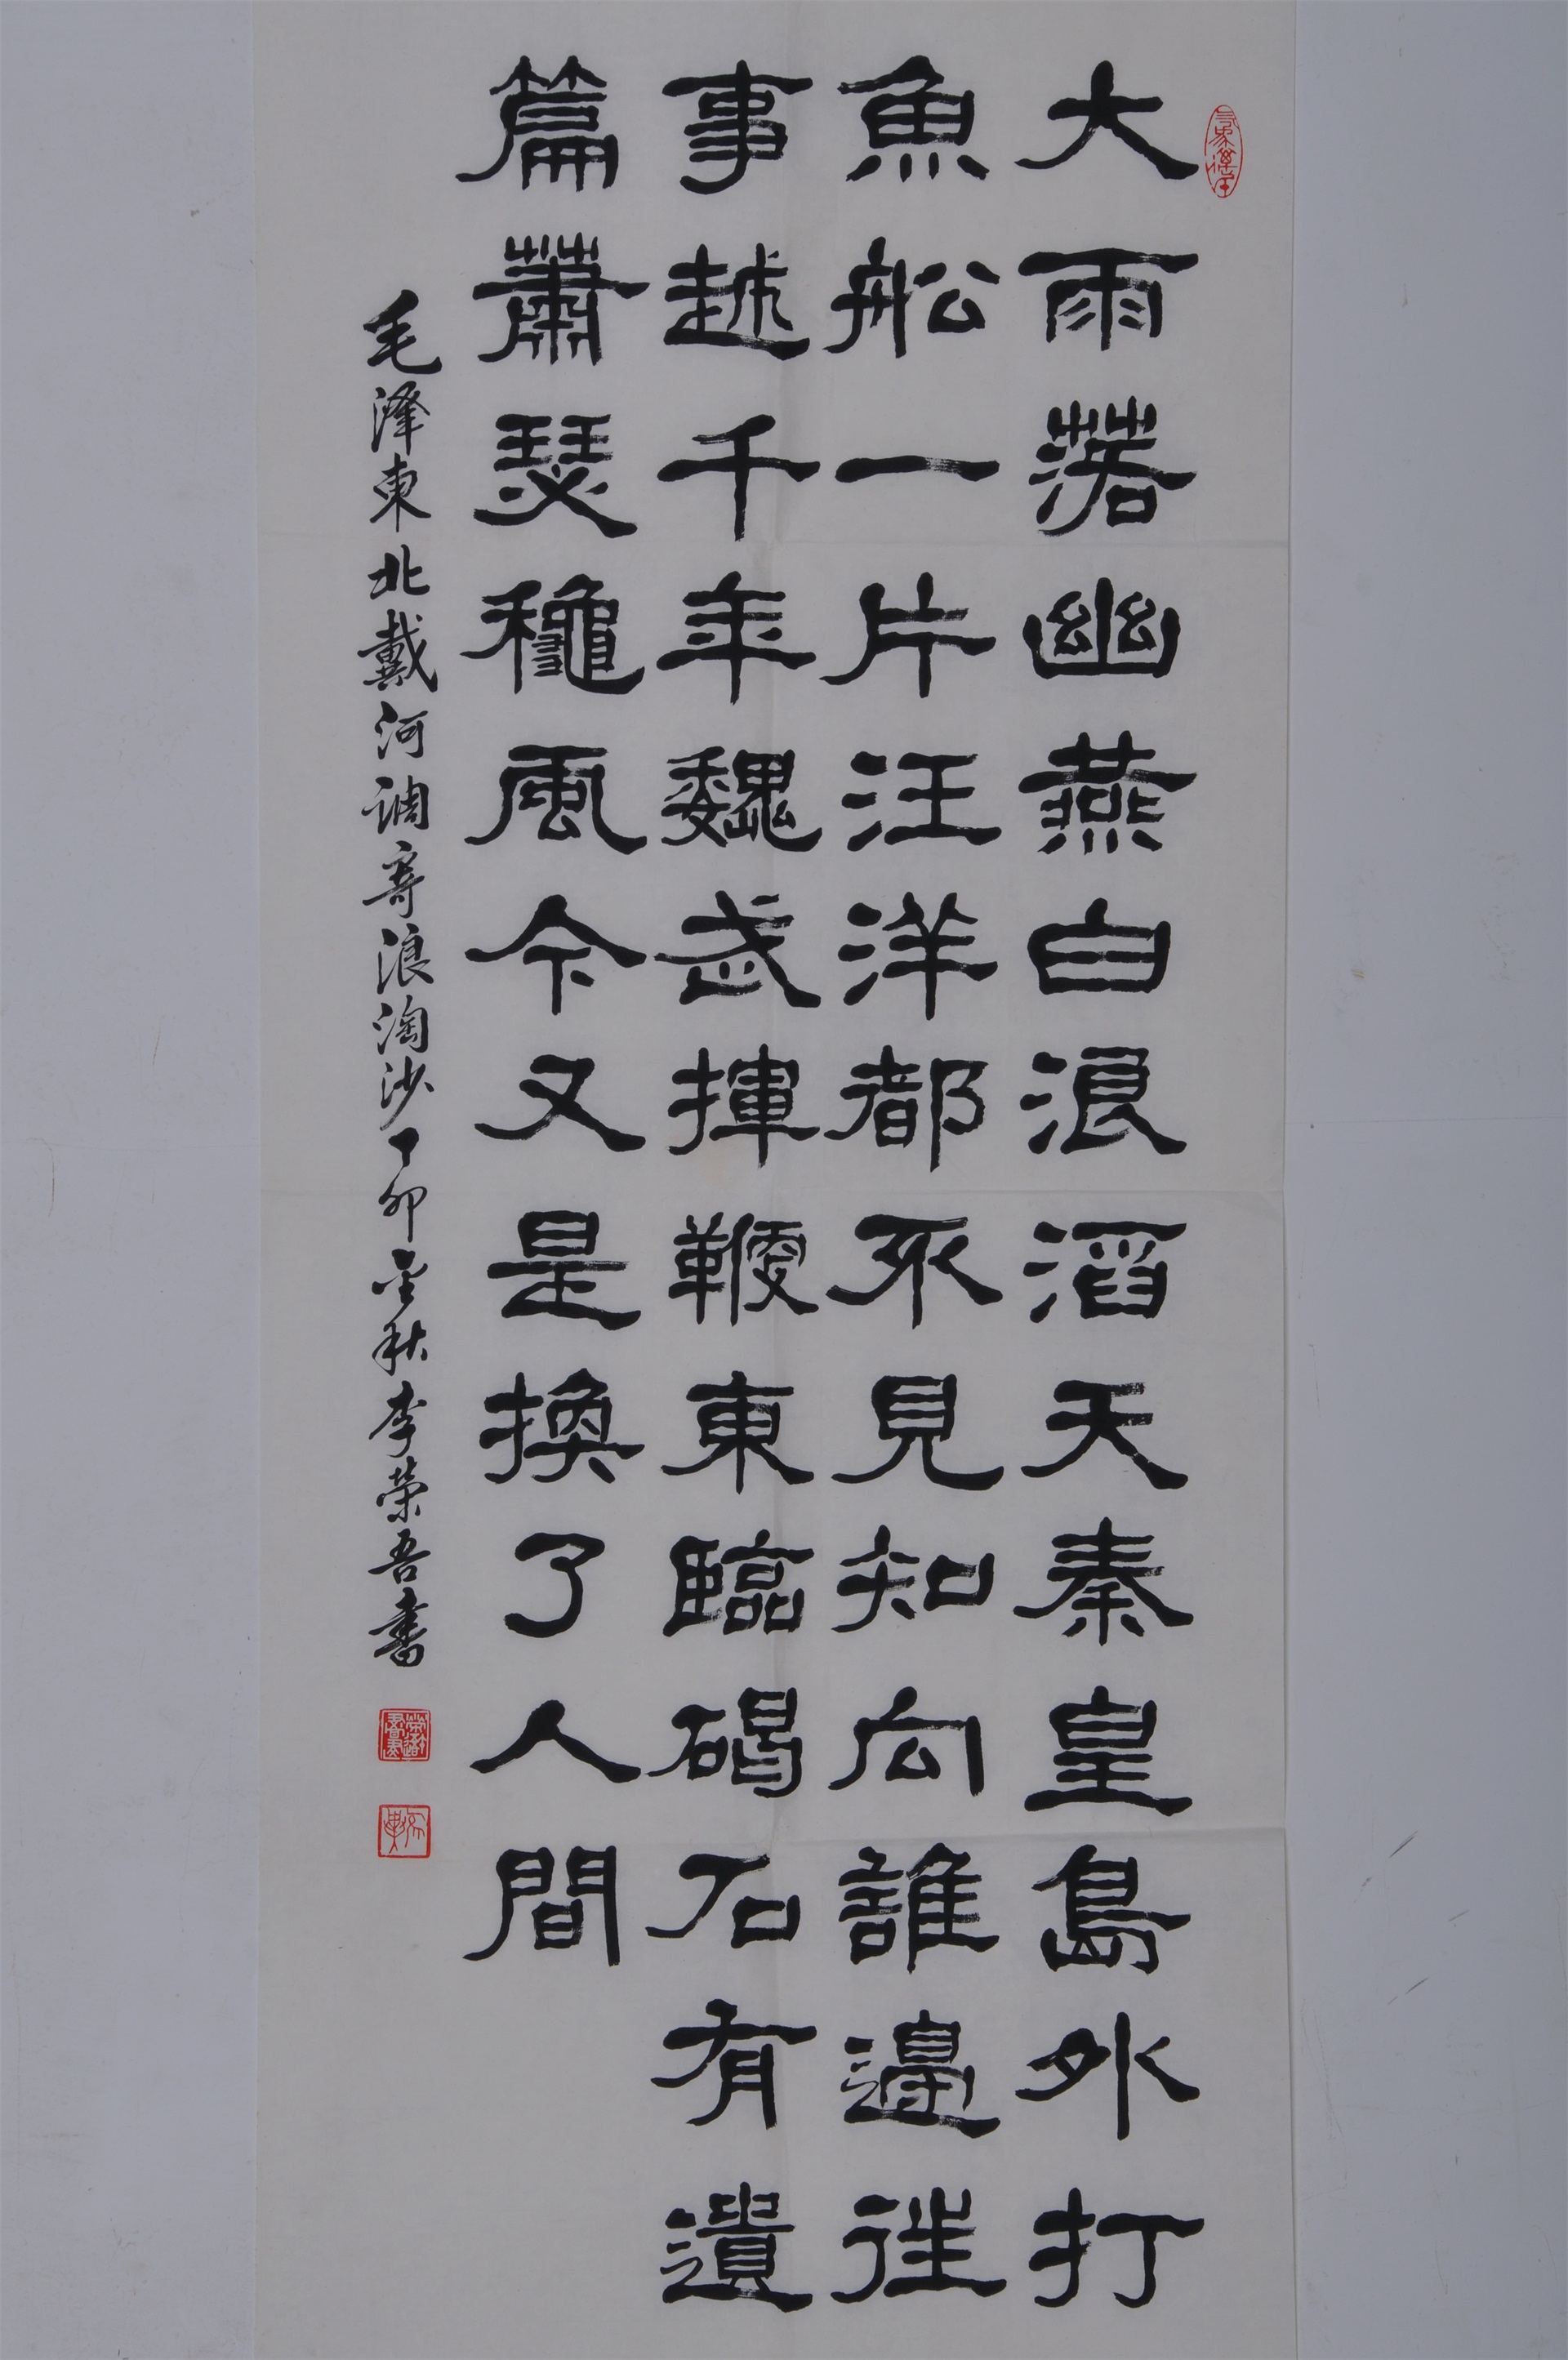 大雨落幽燕白浪滔天秦皇島外打
魚船一片汪洋都不見知向誰邊往
事越千年魏武揮鞭東臨碣石有遺
篇蕭瑟穐風今又是換了人間
毛澤東北戴河调寄浪淘沙丁卯金秋李榮吾書